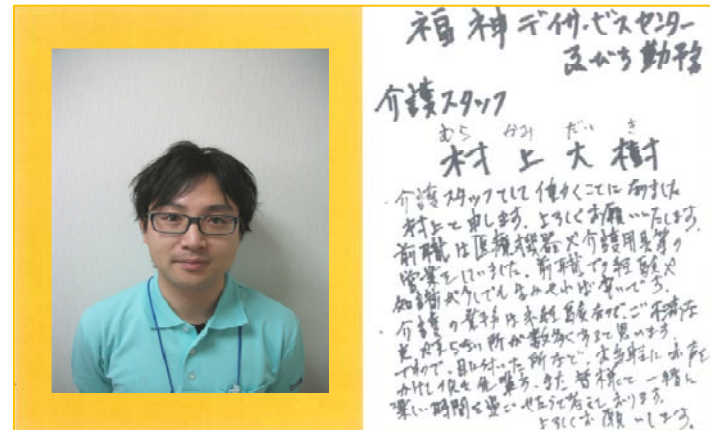 福神デイサービスセンター
ゑびす勤務
介護スタッフ
むら かみ だい き
村上大樹
介護スタッフとして働くことに なりました
村上と申します。よろしくお願いいたします。
前職は医療機器や介護用具等の
営業をしていました。前職での経験や
知識が少しでも なれば幸いです。
介護の仕事は未経験なので、ご不満な
至らない所が数多くあると思います。
ですので、目に付いた所など、お気軽にお声を
かけて 。また皆様と一緒に
楽しい時間を過ごせたらと考えております。
よろしくお願いします。